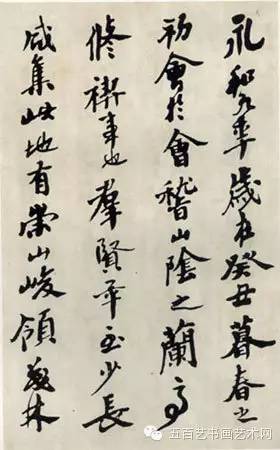 永和九年歲在癸丑暮春之
初會於會稽山陰之蘭亭
修禊事也羣賢畢至少長
咸集此地有崇山峻領茂林
五百艺书画艺术网